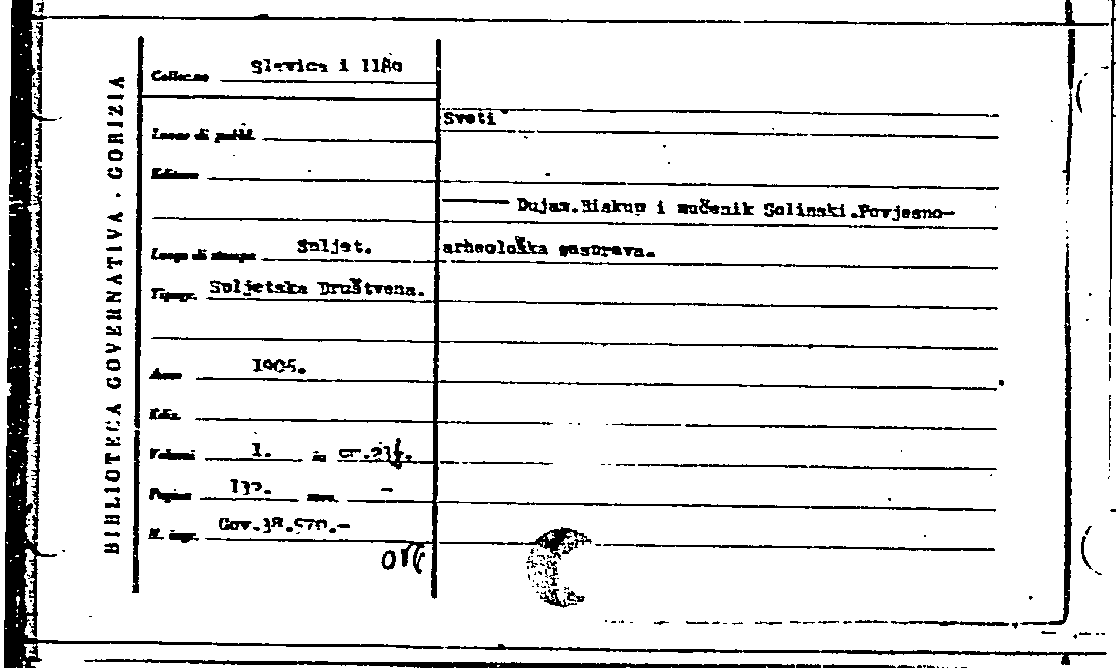 BIBLIOTECA GOVERNATIVA . GORIZIA
Slavica i
Luogo di pubbl.
Editore
Luogo di stampa Spljet.
Tipogr. Spljetska Društvena.
Anno 1905.
Ediz.
Volumi 1. in
Pagine
N. ingr.
Sveti
Dujam.Biskup i mučenik Solinski.Povjesno-
arheološka rasprava.